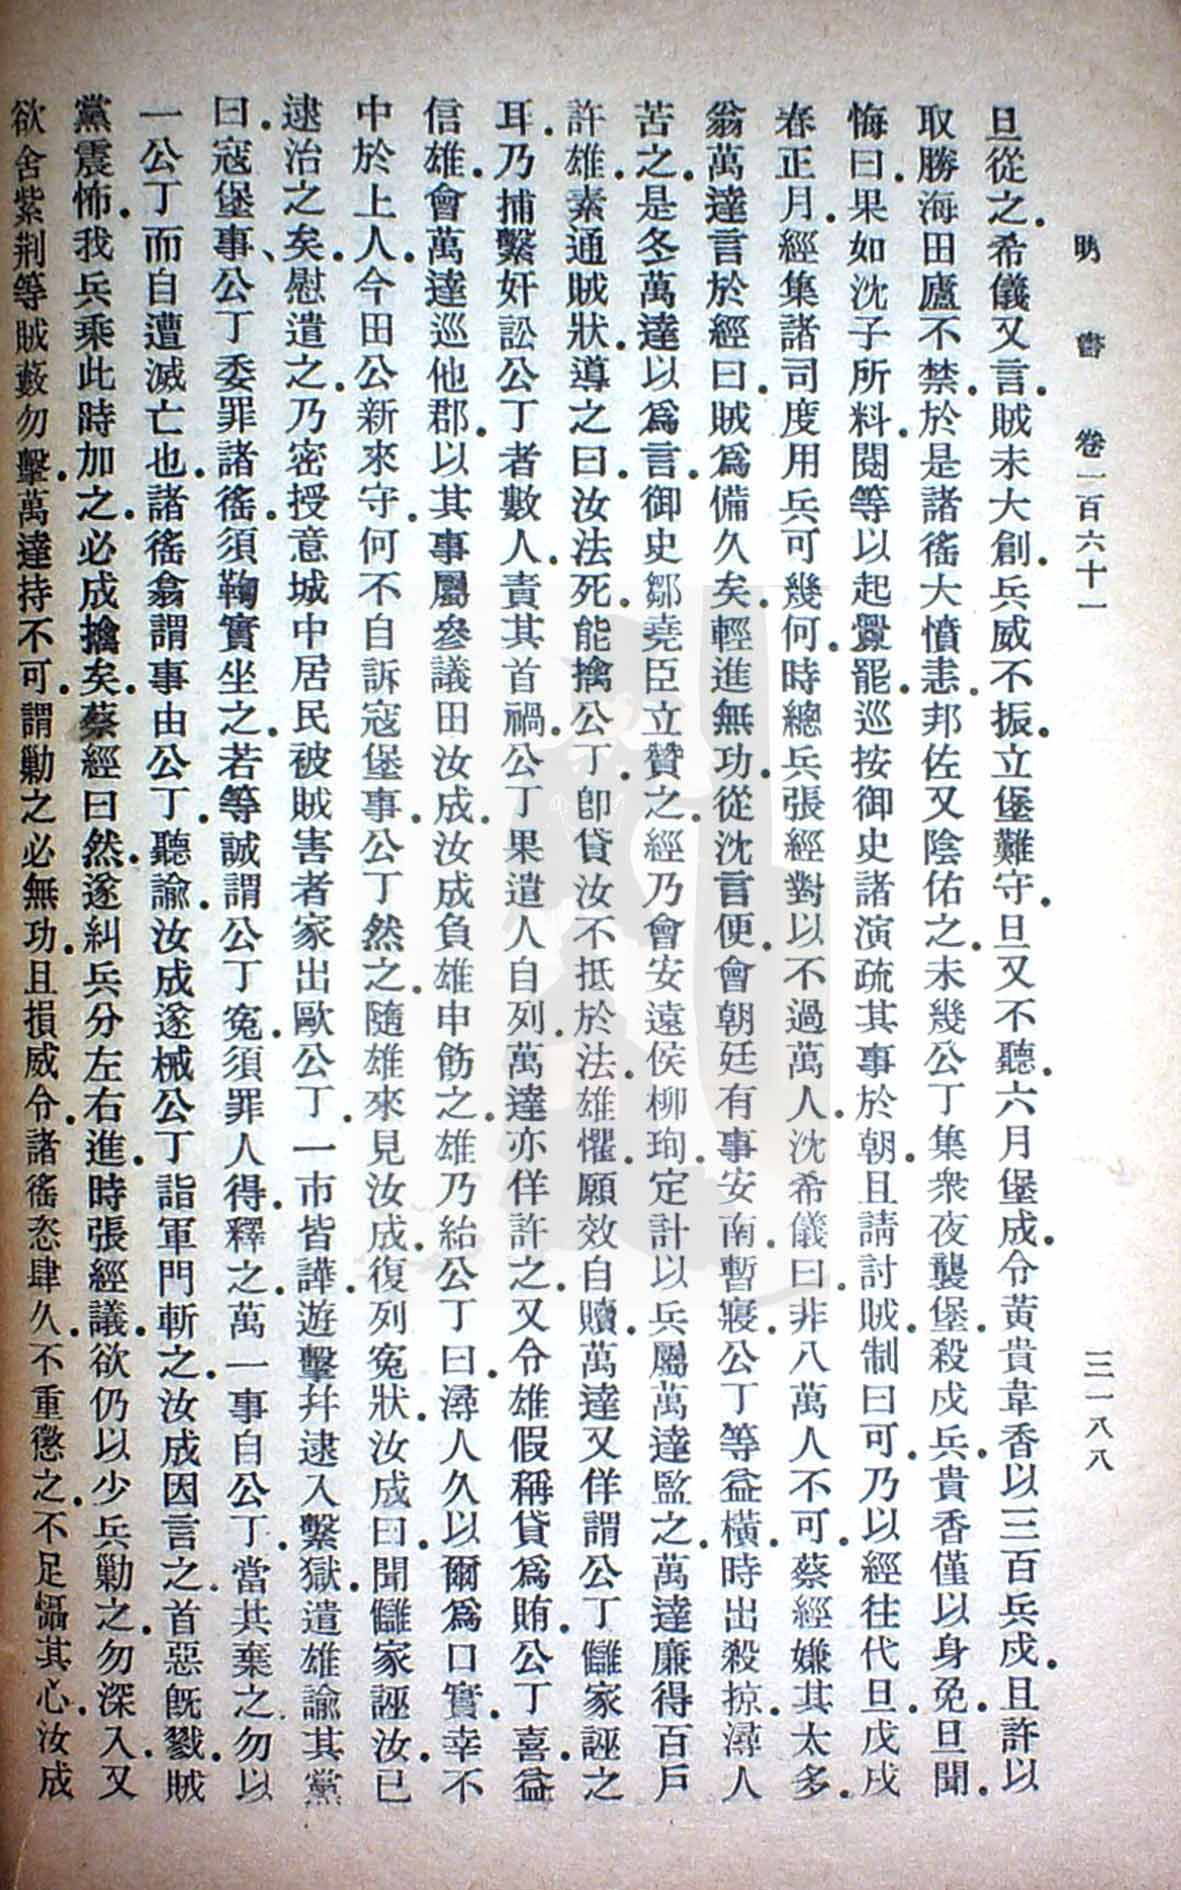 明書 卷一百六十一 三一八八
旦從之．希儀又言．賊未大創．兵威不振．立堡難守．旦又不聽．六月堡成．令黃貴韋香以三百兵戍．且許以
取勝海田廬不禁．於是諸徭大憤恚．邦佐又陰佑之．未幾公丁集衆夜襲堡．殺戍兵．貴香僅以身免．旦聞．
悔曰．果如沈子所料．閱等以起釁罷．巡按御史諸演疏其事於朝．且請討賊．制曰可．乃以經往代旦．戊戌
春正月．經集諸司度用兵可幾何．時總兵張經對以不過萬人．沈希儀曰．非八萬人不可．蔡經嫌其太多．
翁萬達言於經曰．賊爲備久矣．輕進無功．從沈言便．會朝廷有事安南．暫寢．公丁等益橫．時出殺掠．潯人
苦之．是冬．萬達以爲言．御史鄒堯臣立贊之．經乃會安遠侯柳珣定計．以兵屬萬達監之．萬達廉得百戶
許雄．素通賊狀．導之曰．汝法死．能擒公丁．卽貸汝不抵於法．雄懼．願效自贖．萬達又佯謂公丁讎家誣之
耳．乃捕繫奸訟公丁者數人．責其首禍．公丁果遣人自列．萬達亦佯許之．又令雄假稱貸爲賄．公丁喜．益
信雄．會萬達巡他郡．以其事屬參議田汝成．汝成負雄申飭之．雄乃紿公丁曰．潯人久以爾爲口實．幸不
中於上人．今田公新來守．何不自訴寇堡事．公丁然之．隨雄來見汝成．復列冤狀．汝成曰．聞讎家誣汝．已
逮治之矣．慰遣之．乃密授意城中居民被賊害者家出毆公丁．一市皆譁．遊擊幷逮入繫獄．遣雄諭其黨
曰．寇堡事、公丁委罪諸徭．須鞠實坐之．若等誠謂公丁冤．須罪人得．釋之．萬一事白公丁．當共棄之．勿以
一公丁而自遭滅亡也．諸徭翕謂事由公丁．聽諭．汝成遂械公丁詣軍門斬之．汝成因言之．首惡旣戮．賊
黨震怖．我兵乘此時加之．必成擒矣．蔡經曰然．遂糾兵分左右進．時張經議．欲仍以少兵勦之．勿深入．又
欲舍紫荆等賊藪勿擊．萬達持不可．謂勦之必無功．且損威令．諸徭恣肆久．不重懲之．不足懾其心．汝成